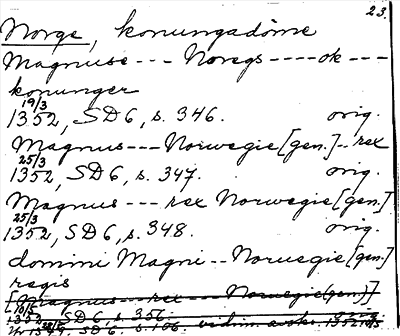 23.
Norge, konungadöme
Magnuse --- Noregs ---- ok ---
konunger
19/3
1352, SD6, s. 346. orig.
Magnus --- Norwegie [gen.] -- rex
25/3
1352, SD6, s. 347. orig.
Magnus --- rex Norwegie [gen.]
25/3
1352, SD6, s. 348. orig.
domini Magni -- Noruegie [gen.]
regis
[Magnus --- rex --- Noruegie (gen.)]
SD6, s. 356.
SD6, s. 106. vidim.